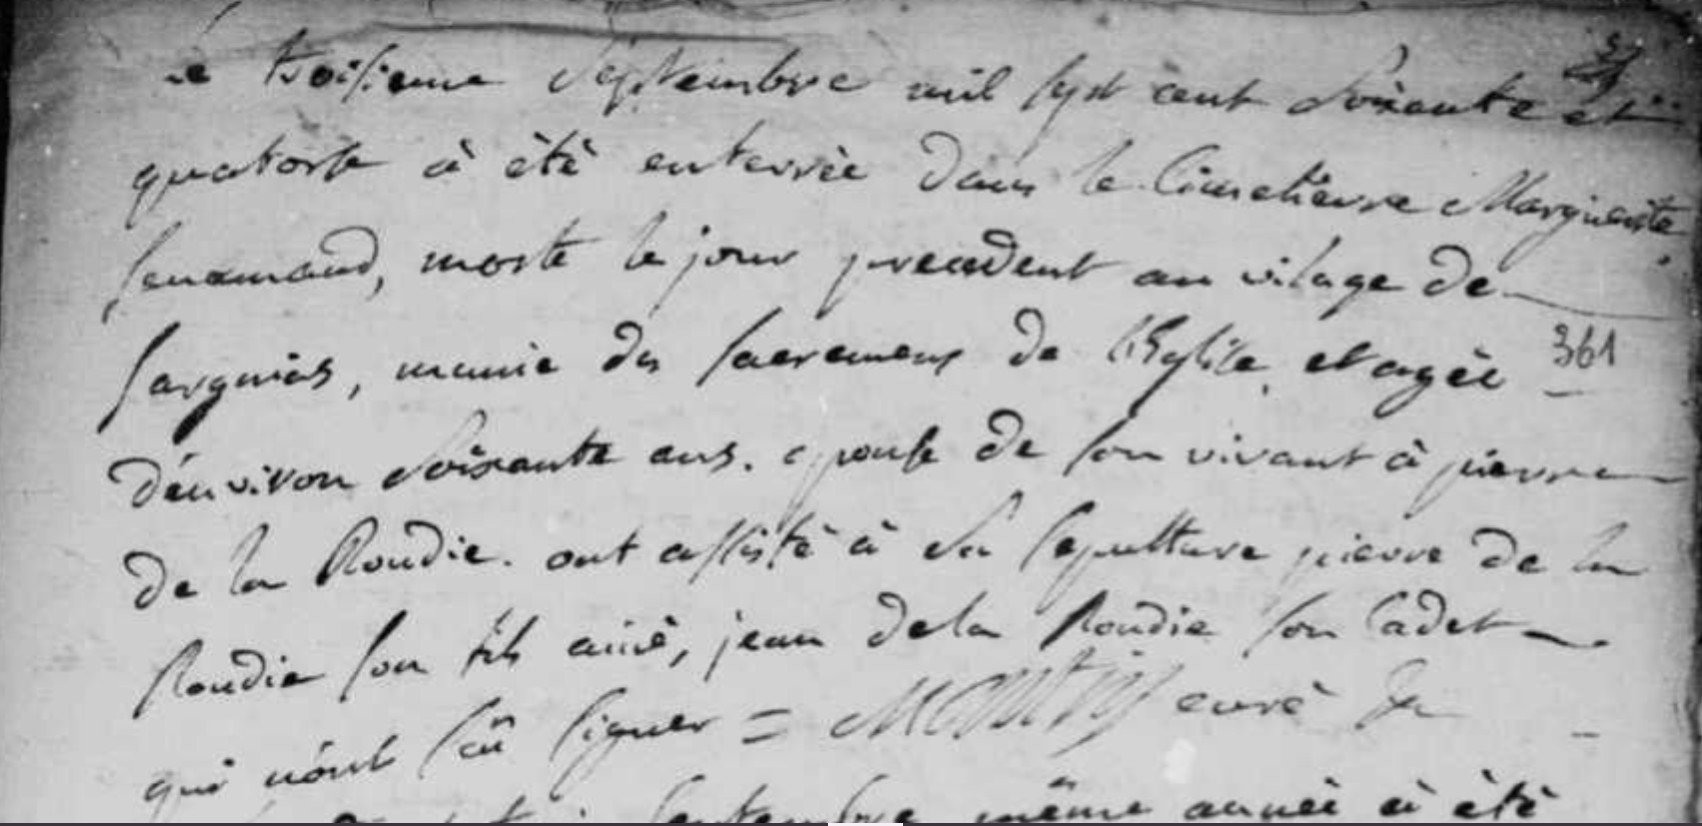 Le troisieme Septembre mil sept cent soixante et
quatorse à été enterrée dans le Cimetierre Marguerite
senamaud, morte le jour precedent au vilage de
sargnias, munie des sacremens de l'Eglise, et agée 361
d'environ soixante ans. epouse de son vivant à pierre
de la Roudie. ont assisté à sa sepulture pierre de la
Roudie son fils ainé, jean de la Roudie son Cadet
qui n'ont sçû signer = curé
septembre même année à été